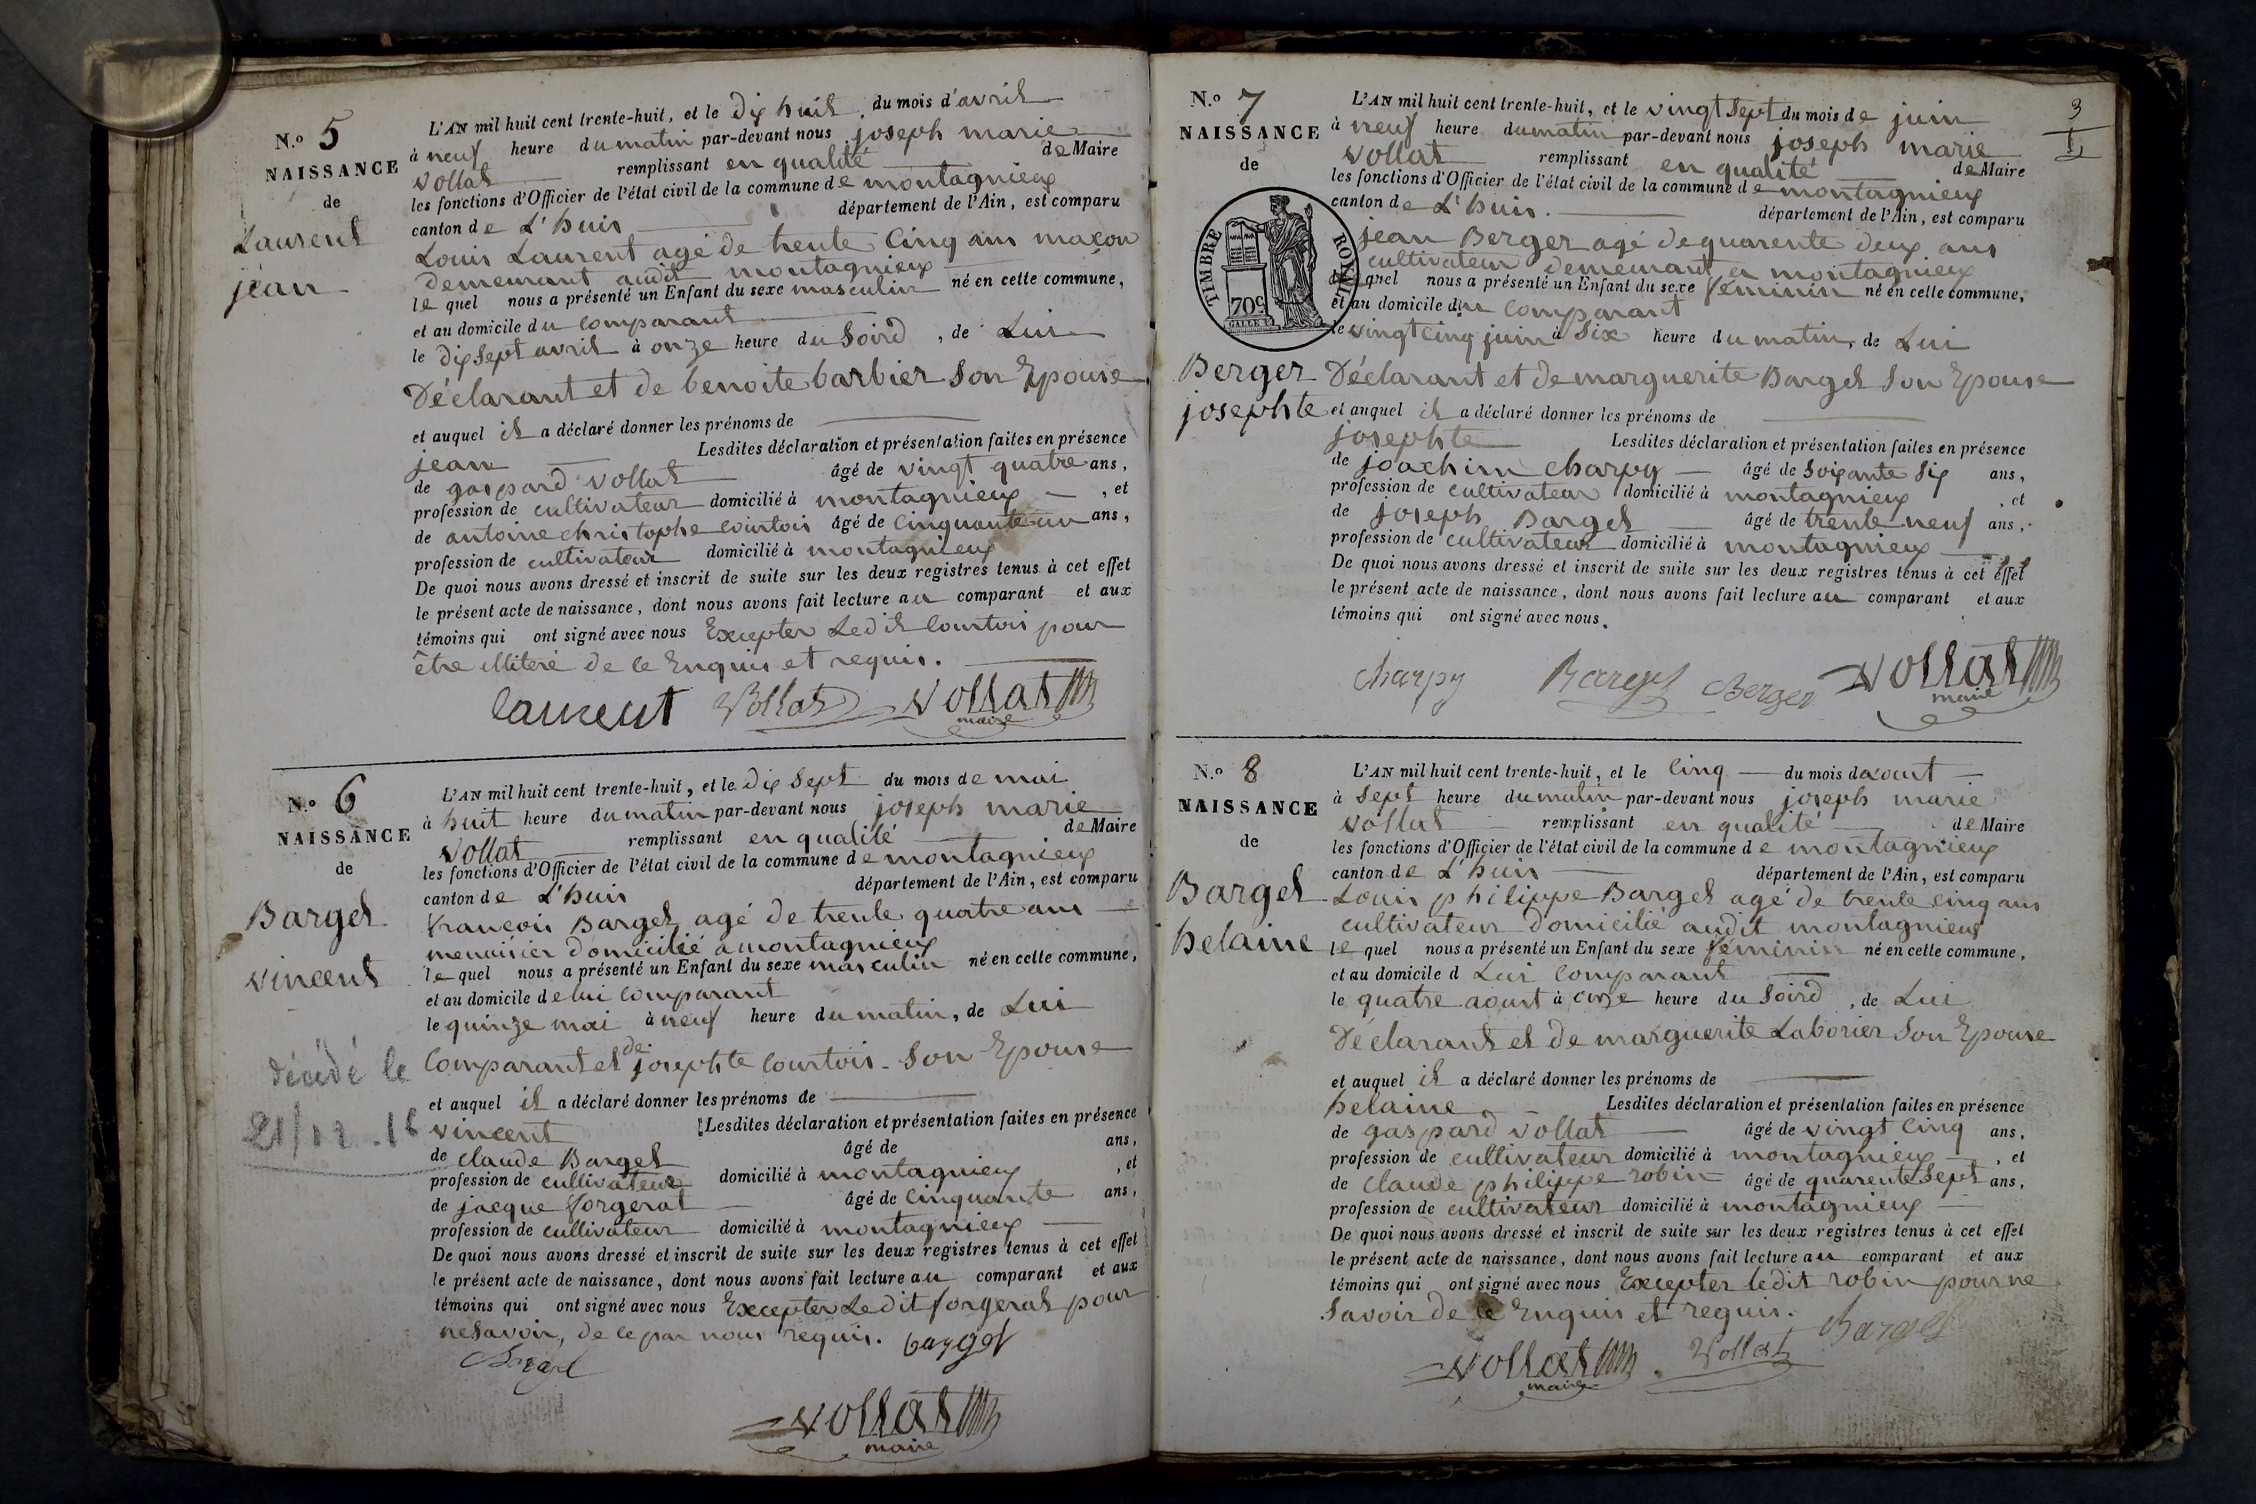 N.o 5
NAISSANCE
de
Laurent
jean
L'AN mil huit cent trente-huit, et le dix huit du mois d'avril
à neuf heure du matin par-devant nous joseph marie
vollat remplissant en qualité de Maire
les fonctions d'Officier de l'état civil de la commune de montagnieux
canton de L'huis département de l'Ain, est comparu
Louis Laurent agé de trente cinq ans maçon
demeurant audit montagnieux
le quel nous a présenté un Enfant du sexe masculin né en cette commune,
et au domicile du comparant
le dix sept avril à onze heure du soird, de Lui
Déclarant et de benoite barbier son Epouse
et auquel il a déclaré donner les prénoms de
jean Lesdites déclaration et présentation faites en présence
de gaspard vollat âgé de vingt quatre ans,
profession de cultivateur domicilié à montagnieux, et
de antoine christophe courtois âgé de cinquante un ans,
profession de cultivateur domicilié à montagnieux
De quoi nous avons dressé et inscrit de suite sur les deux registres tenus à cet effet
le présent acte de naissance, dont nous avons fait lecture au comparant et aux
témoins qui ont signé avec nous Excepter Ledit Courtois pour
être illiteré de ce Enquis et requis.
laurent Vollat vollat
maire
N.o 6
NAISSANCE
de
Barget
vincent
décédé le
L'AN mil huit cent trente-huit, et le dix sept du mois de mai
à huit heure du matin par-devant nous joseph marie
vollat remplissant en qualité de Maire
les fonctions d'Officier de l'état civil de la commune de montagnieux
canton de L'huis département de l'Ain, est comparu
françois Barget agé de trente quatre ans
menuisier domicilié a montagnieux
le quel nous a présenté un Enfant du sexe masculin né en cette commune,
et au domicile de lui comparant
le quinze mai à neuf heure du matin, de Lui
Comparant et de josephte Courtois son Epouse
et auquel il a déclaré donner les prénoms de
vincent Lesdites déclaration et présentation faites en présence
de claude Barget âgé de ans,
profession de cultivateur domicilié à montagnieux, et
de jacque forgerat âgé de cinquante ans,
profession de cultivateur domicilié à montagnieux
De quoi nous avons dressé et inscrit de suite sur les deux registres tenus à cet effet
le présent acte de naissance, dont nous avons fait lecture au comparant et aux
témoins qui ont signé avec nous Excepter Ledit forgerat pour
nesavoir, de ce par nous requis. bargot
vollat
maire
3
N.o 7
NAISSANCE
de
TIMBRE ROYAL
70c
Berger
josephte
L'AN mil huit cent trente-huit, et le vingt sept du mois de juin
à neuf heure du matin par-devant nous joseph marie
vollat remplissant en qualité de Maire
les fonctions d'Officier de l'état civil de la commune de montagnieux
canton de L'huis. département de l'Ain, est comparu
jean Berger agé de quarente deux ans
cultivateur demeurant a montagnieux
le quel nous a présenté un Enfant du sexe féminin né en cette commune,
et au domicile du comparant
le vingt cinq juin à six heure du matin, de Lui
Déclarant et de marguerite Barget son Epouse
et auquel il a déclaré donner les prénoms de
josephte Lesdites déclaration et présentation faites en présence
de joachim charpy âgé de soixante six ans,
profession de cultivateur domicilié à montagnieux, et
de joseph Barget âgé de trente neuf ans,
profession de cultivateur domicilié à montagnieux
De quoi nous avons dressé et inscrit de suite sur les deux registres tenus à cet effet
le présent acte de naissance, dont nous avons fait lecture au comparant et aux
témoins qui ont signé avec nous.
charpy Barget Berger vollat
maire
N.o 8
NAISSANCE
de
Barget
helaine
L'AN mil huit cent trente-huit, et le cinq du mois daoust
à sept heure du matin par-devant nous joseph marie
vollat remplissant en qualité de Maire
les fonctions d'Officier de l'état civil de la commune de montagnieux
canton de L'huis département de l'Ain, est comparu
Louis philippe Barget agé de trente cinq ans
cultivateur domicilié audit montagnieux
le quel nous a présenté un Enfant du sexe féminin né en cette commune,
et au domicile d Lui comparant
le quatre aoust à onze heure du soird, de Lui
Déclarant et de marguerite Laborier son Epouse
et auquel il a déclaré donner les prénoms de
helaine Lesdites déclaration et présentation faites en présence
de gaspard vollat âgé de vingt cinq ans,
profession de cultivateur domicilié à montagnieux, et
de claude philippe robin âgé de quarente sept ans,
profession de cultivateur domicilié à montagnieux
De quoi nous avons dressé et inscrit de suite sur les deux registres tenus à cet effet
le présent acte de naissance, dont nous avons fait lecture au comparant et aux
témoins qui ont signé avec nous Excepter ledit robin pour ne
savoir de ce Enquis et requis.
vollat Vollat Barget
maire